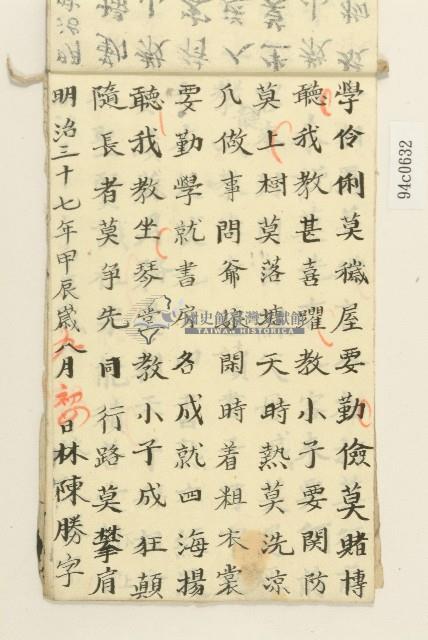 學伶俐莫穢屋要勤儉莫賭博
聽我教甚喜躍教小子要関防
莫上樹莫落塘天時熱莫洗凉
凡做事問爺娘閑時着粗衣裳
要勤學就書房各成就四海揚
聽我教坐琴堂教小子成狂顛
隨長者莫争先同行路莫攀肩
明治三十七年甲辰歲八月初四日林陳勝字
國史館臺灣文獻館
TAIWAN HISTORICA
94c0632